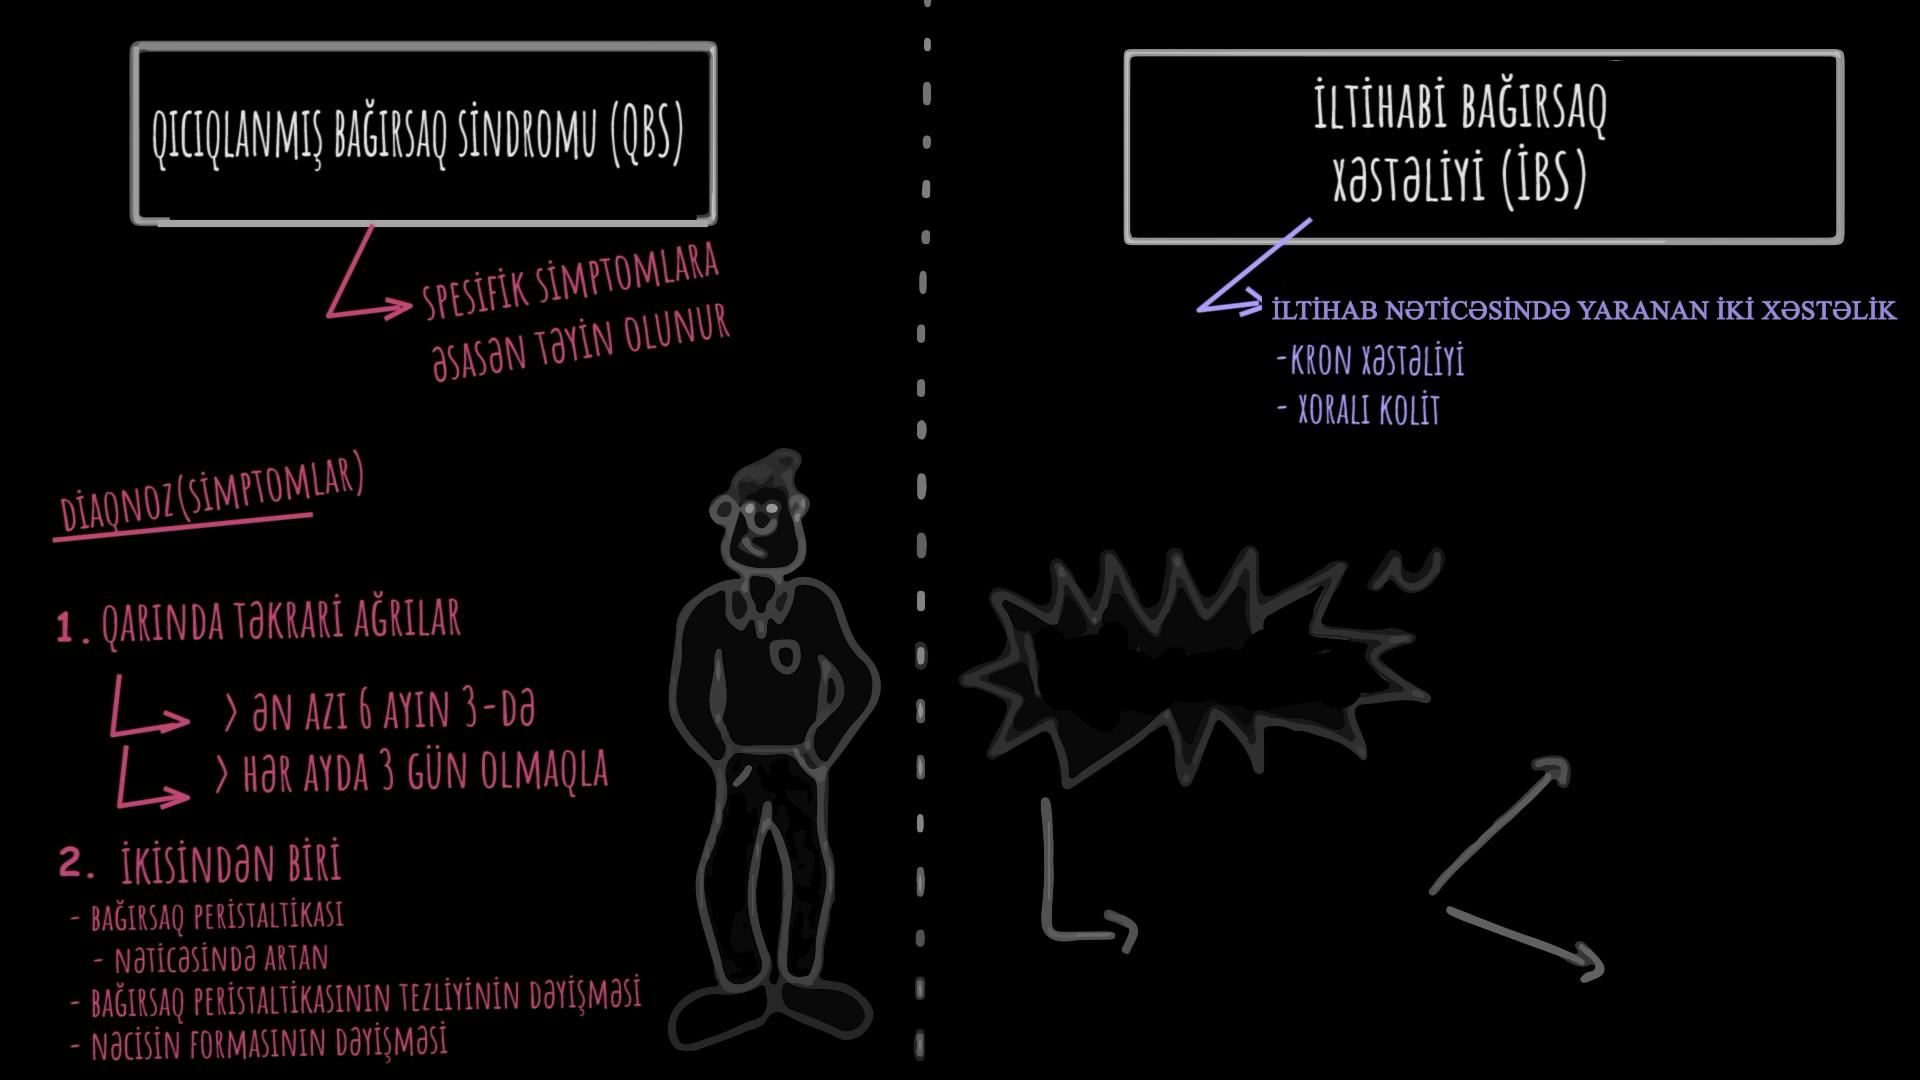 QICIQLANMIŞ BAĞIRSAQ SİNDROMU (QBS)
SPESİFİK SİMPTOMLARA
ƏSASƏN TƏYİN OLUNUR
DİAQNOZ(SİMPTOMLAR)
1. QARINDA TƏKRARİ AĞRILAR
> ƏN AZI 6 AYIN 3-DƏ
> HƏR AYDA 3 GÜN OLMAQLA
2. İKİSİNDƏN BİRİ
- BAĞIRSAQ PERİSTALTİKASI
- NƏTİCƏSİNDƏ ARTAN
- BAĞIRSAQ PERİSTALTİKASININ TEZLİYİNİN DƏYİŞMƏSİ
- NƏCİSİN FORMASININ DƏYİŞMƏSİ
İLTİHABİ BAĞIRSAQ
XƏSTƏLİYİ (İBS)
İLTİHAB NƏTİCƏSİNDƏ YARANAN İKİ XƏSTƏLİK
-KRON XƏSTƏLİYİ
- XORALI KOLİT